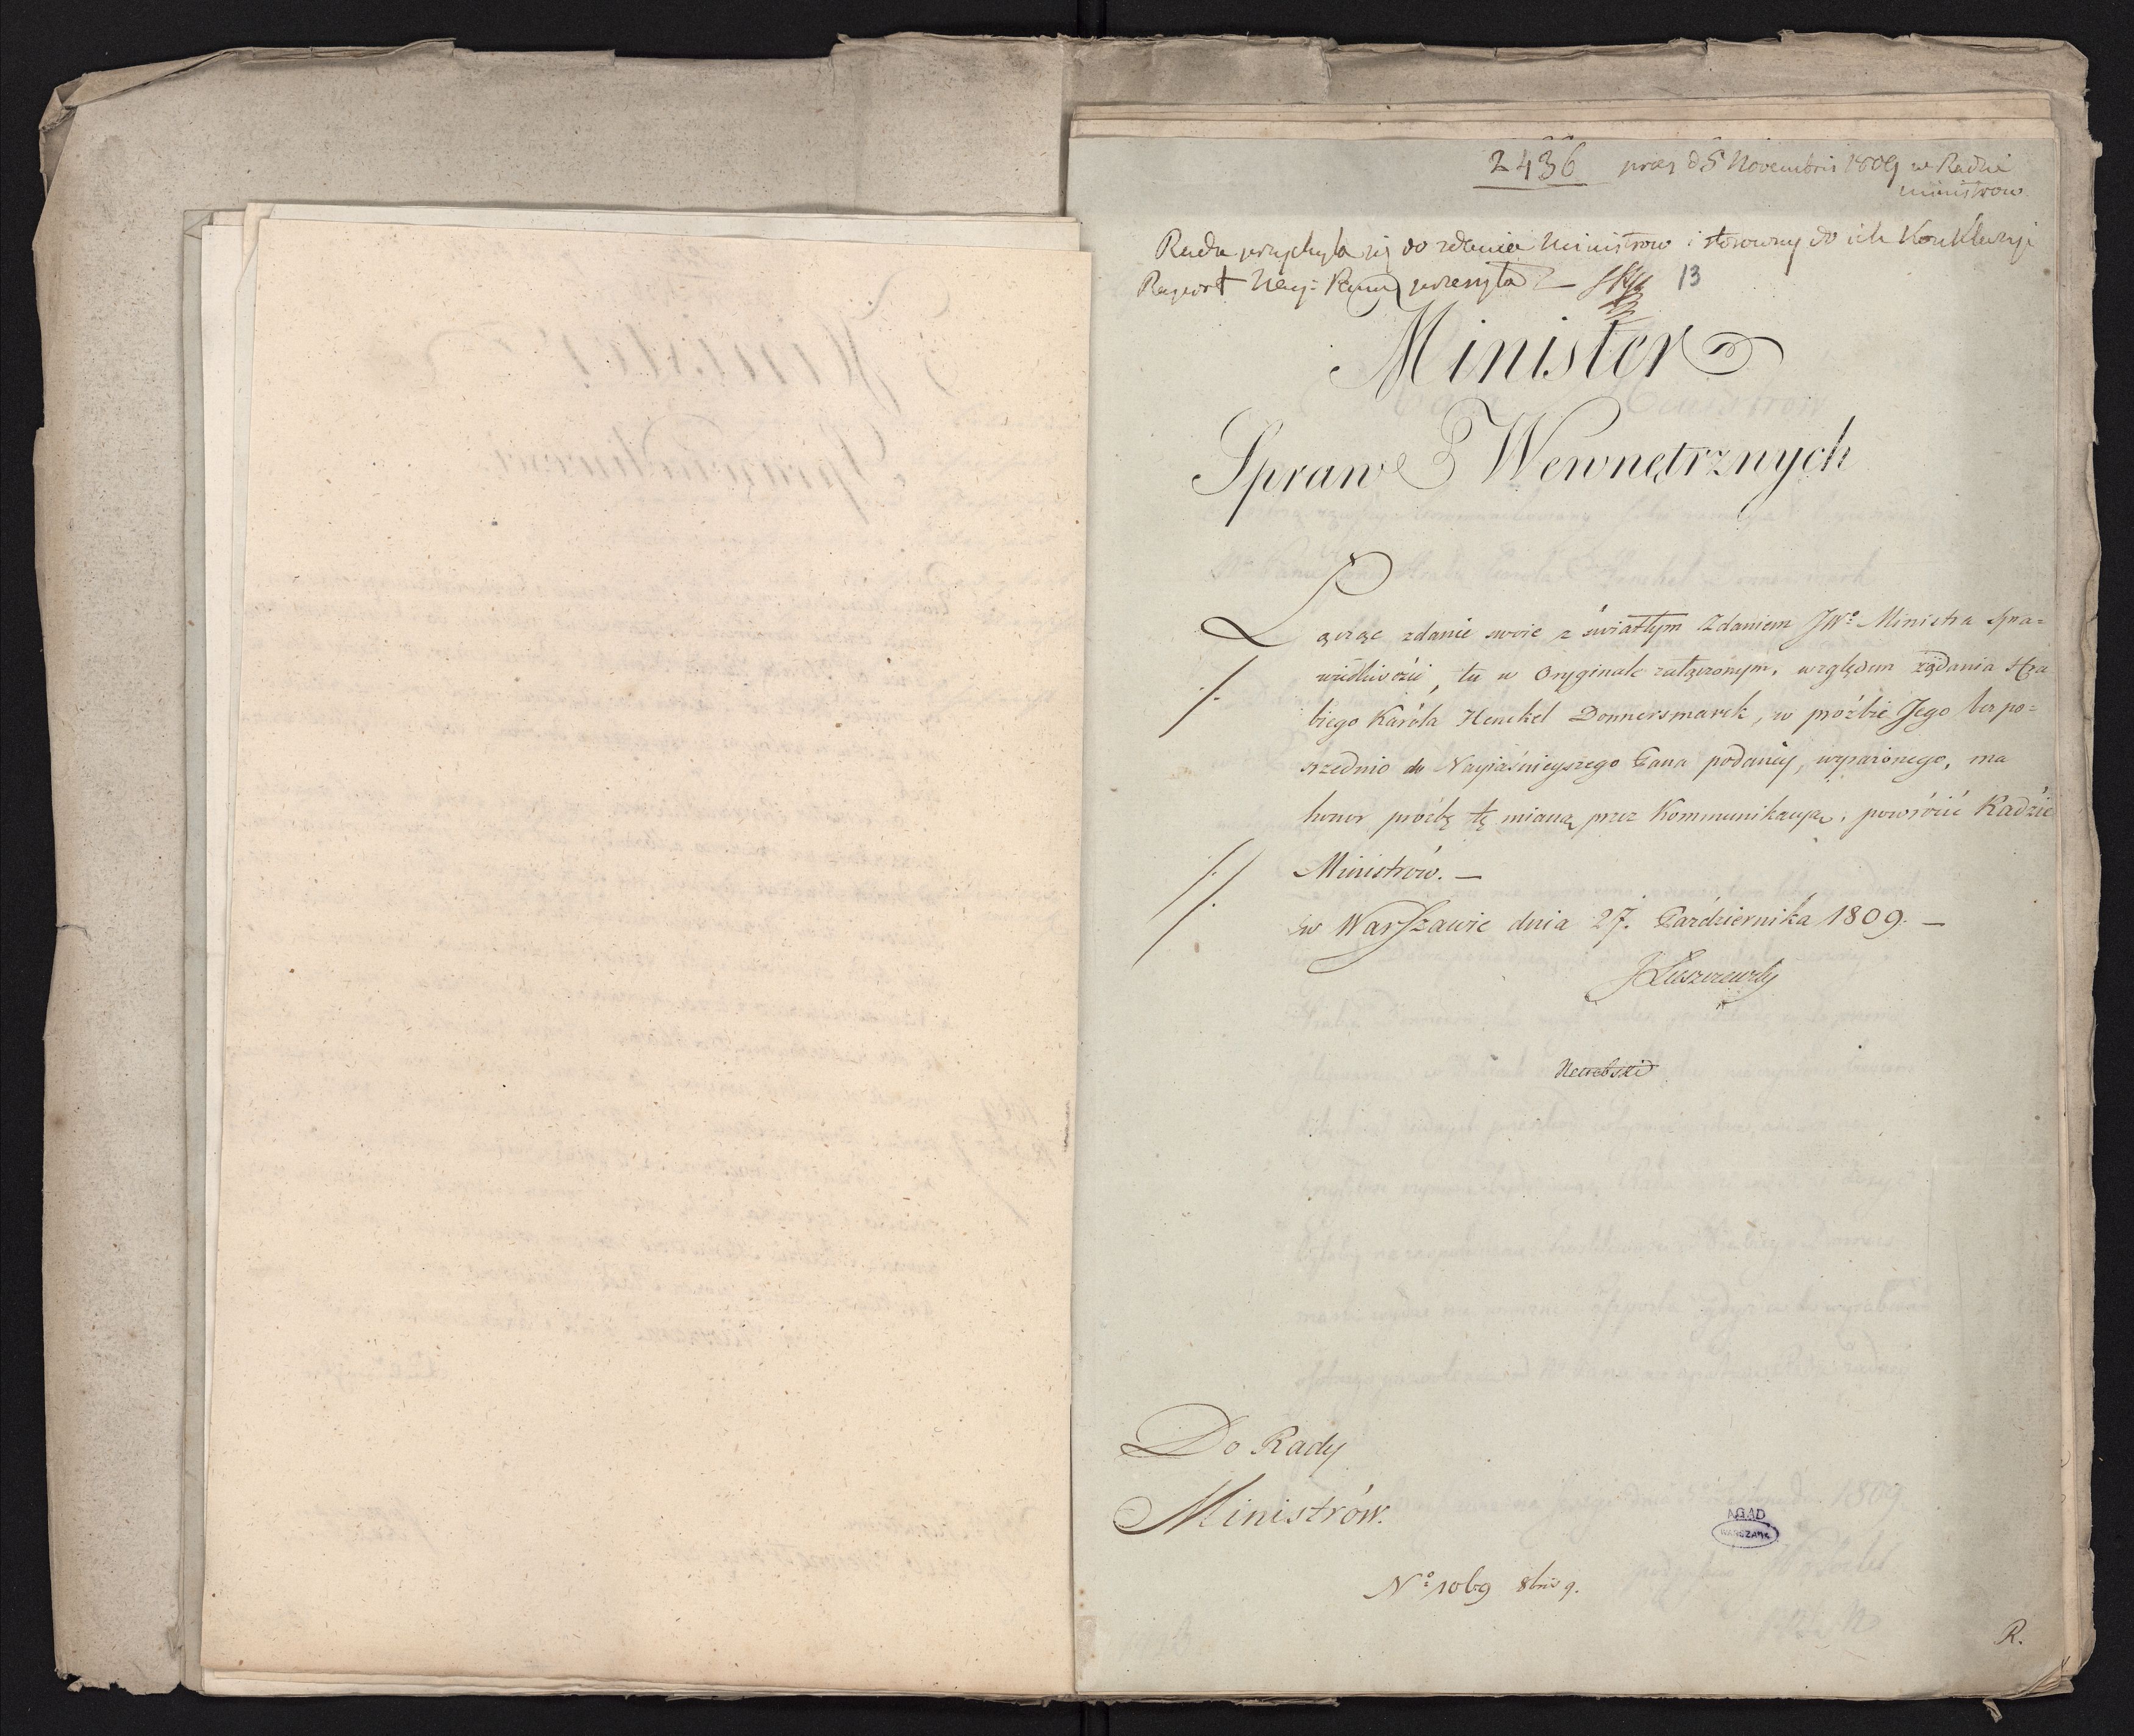 2436 prez d 5 Novembris 1809 w Radzie
ministrow
Rada przychyla się do zdania Ministrow i stosowny do ich Konkluzyi
Raport Nay: Panu przesyła — 13
Minister
Spraw Wewnętrznych
Łącząc zdanie swoie z światłym Zdaniem JWo Ministra Spra=
wiedliwości, tu w Oryginale załączonym, względem żądania Hra
biego Karola Henckel Donnersmarck, w proźbie Jego bezpo=
szrednio do Nayiaśnieyszego Pana podaney, wyrażonego, ma
honor proźbę tę mianą przez Kommunikacyą, powrócić Radzie
Ministrów. —
w Warszawie dnia 27. Października 1809. —
JŁuszczewsky
Do Rady
Ministrów.
AGAD
WARSZAWA
No 1069 8bris 9.
R.